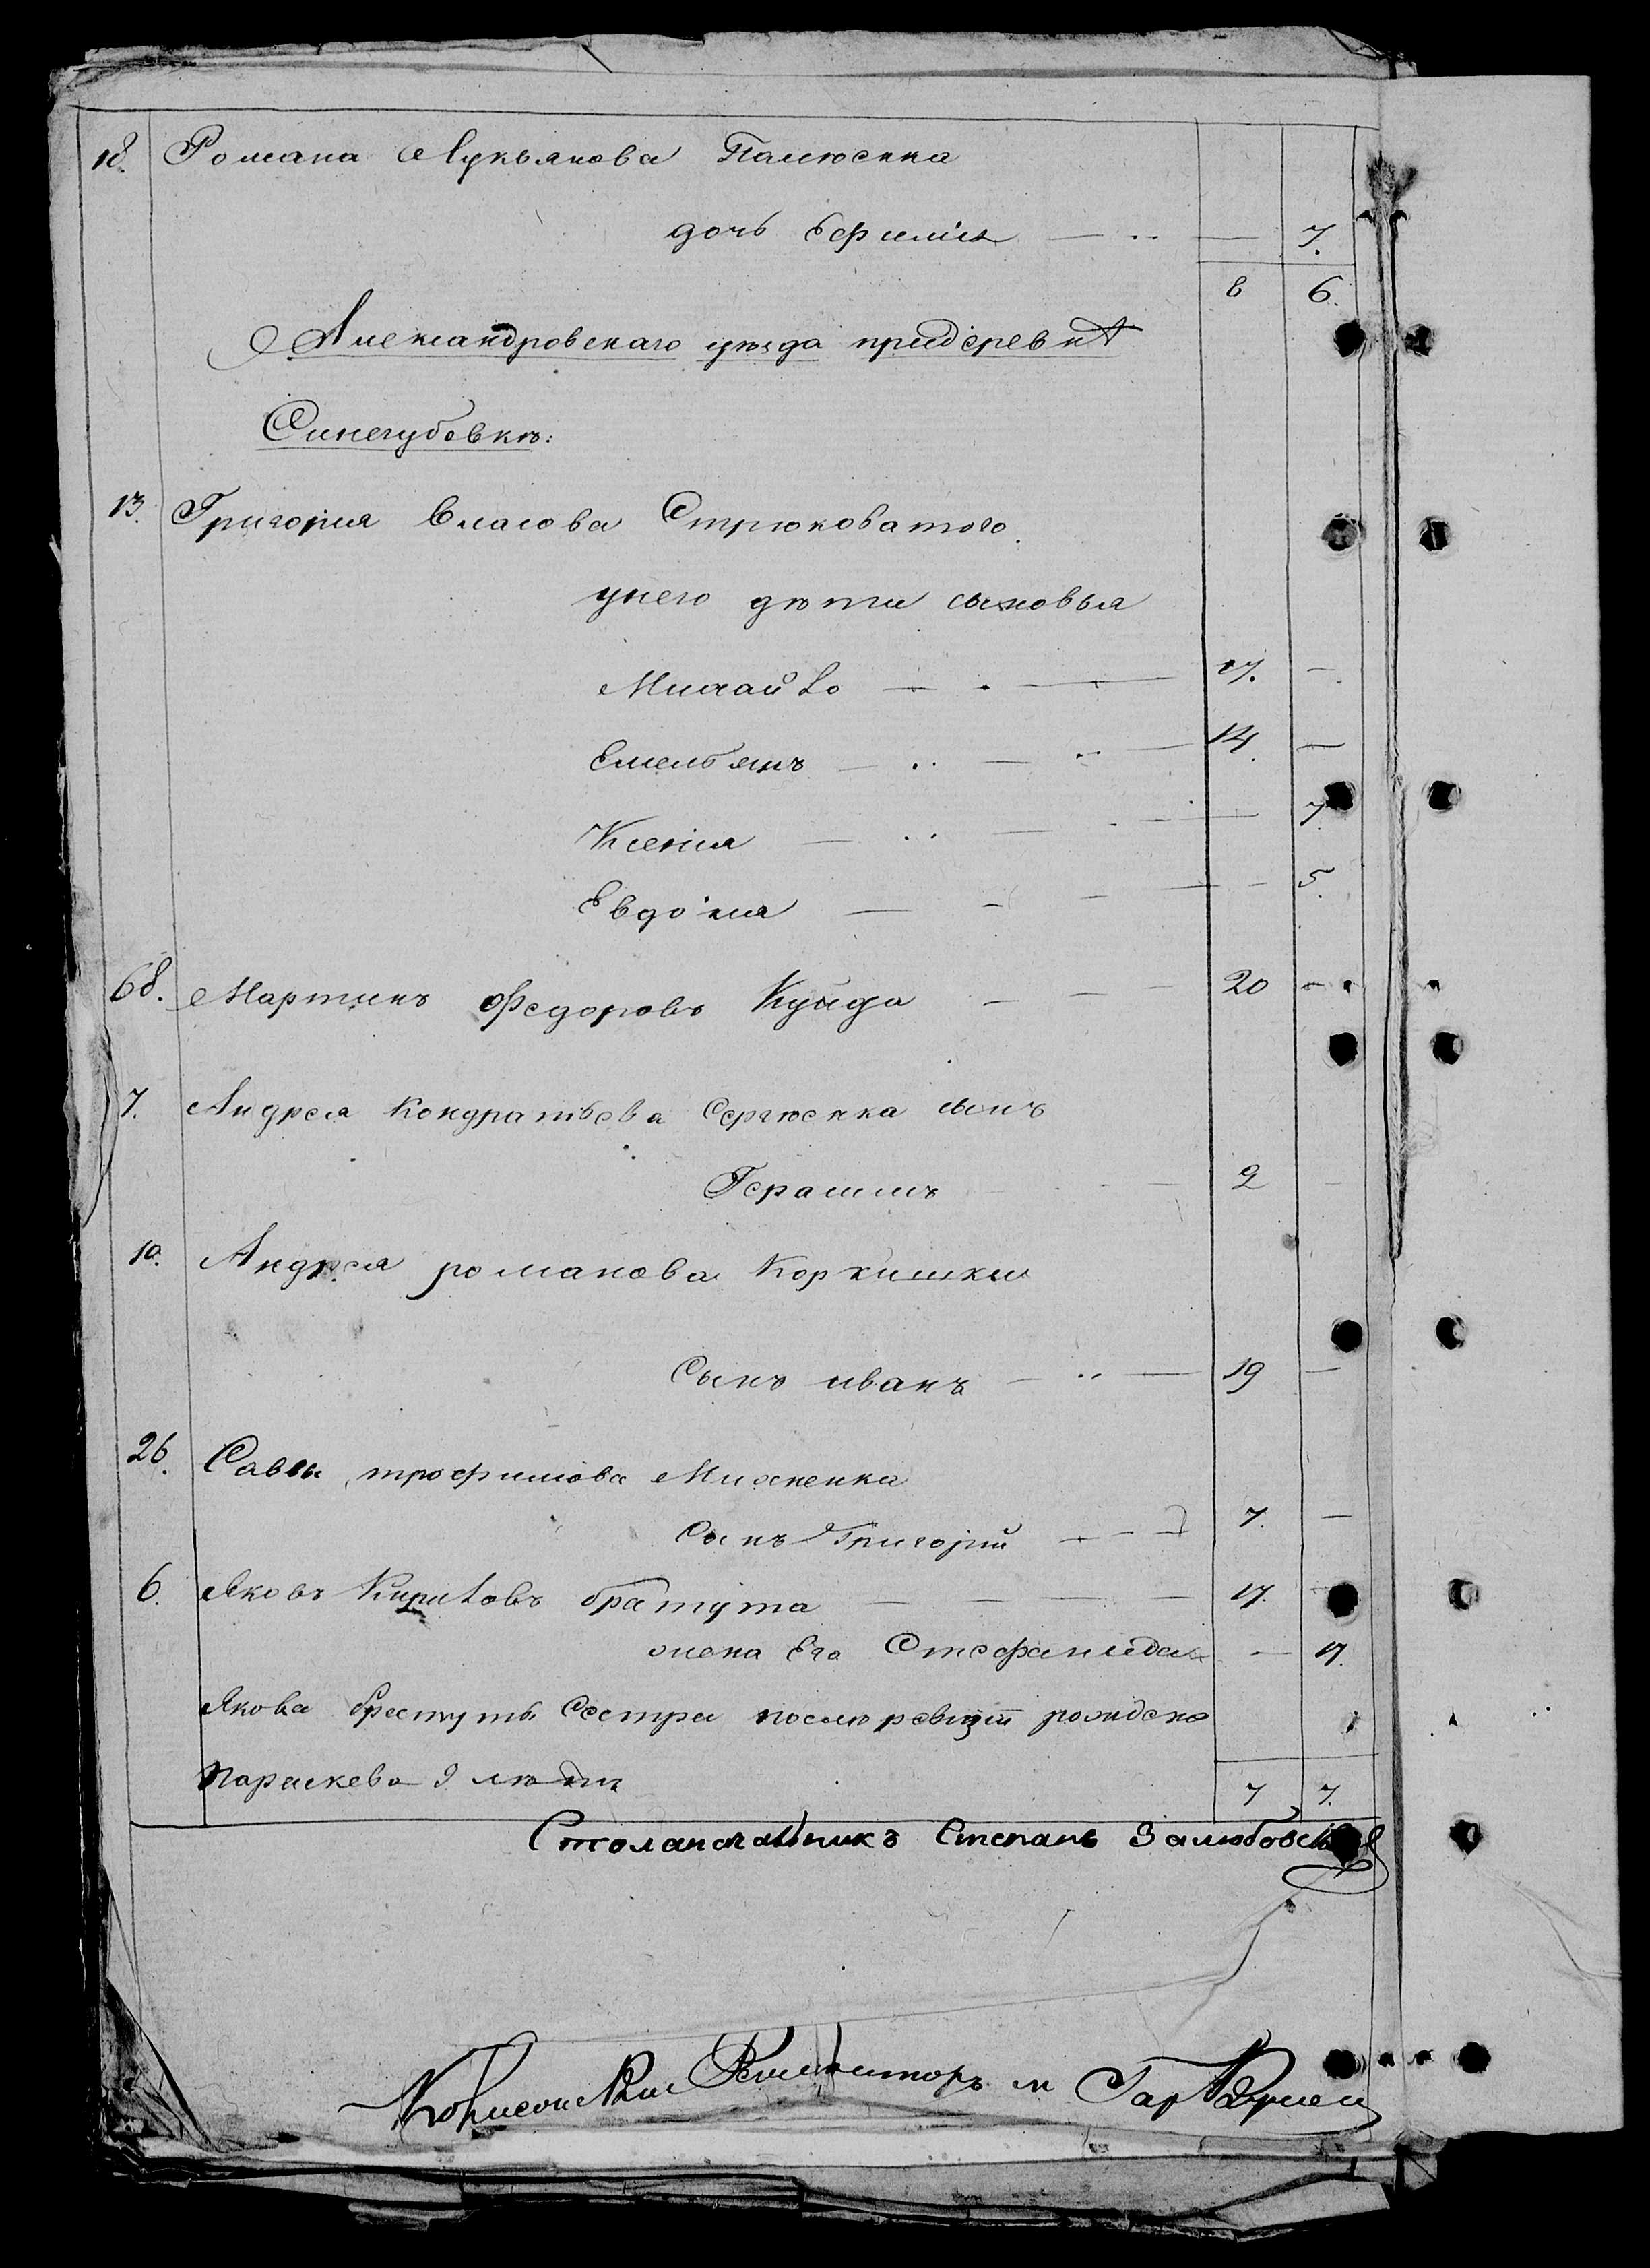 18. Романа Лукьянова Палюенка
дочь Ефимія — „ — 7.
8 6.
Александровскаго уѣзда придеревнѣ
Синегубовкѣ:
13. Григорія Власова Стрюковатого
унего дѣти сыновья
Михайло — „ — 17. —
Емельянъ — „ — „ — 14. —
Ксенія — „ — — 7
Евдокія — — — — 5.
68. Мартинъ Федоровъ Куйда — — — 20 —
7. Андрея Кондратьева Сергюенка сынъ
Герасимъ — 2 —
10. Андрея романова Коржишки
Сынъ иванъ — „ — 19 —
26. Савы трофимова Михненка
Сынъ Григорій — — 7. —
6. Яковъ Кириловъ братута — — — — 17.
жена Его Стефанида — 17.
Якова братуты Сестра послѣ ревизіи рожденна
Параскева 9 лѣт
7 7.
Столаначальникъ Степанъ Залюбовскій